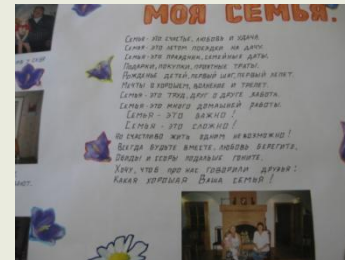 МОЯ СЕМЬЯ.
Семья - это счастье, любовь и удача,
Семья - это летом поездки на дачу.
Семья - это праздник, семейные даты,
Подарки, покупки, приятные траты.
Рождение детей, первый шаг, первый лепет,
Мечты о хорошем, волнение и трепет.
Семья - это труд, друг о друге забота,
Семья - это много домашней работы.
Семья - это важно!
Семья - это сложно!
Но счастливо жить одним невозможно!
Всегда будьте вместе, любовь берегите,
Обиды и ссоры подальше гоните,
Хочу, чтоб про нас говорили друзья:
Какая хорошая Ваша семья!